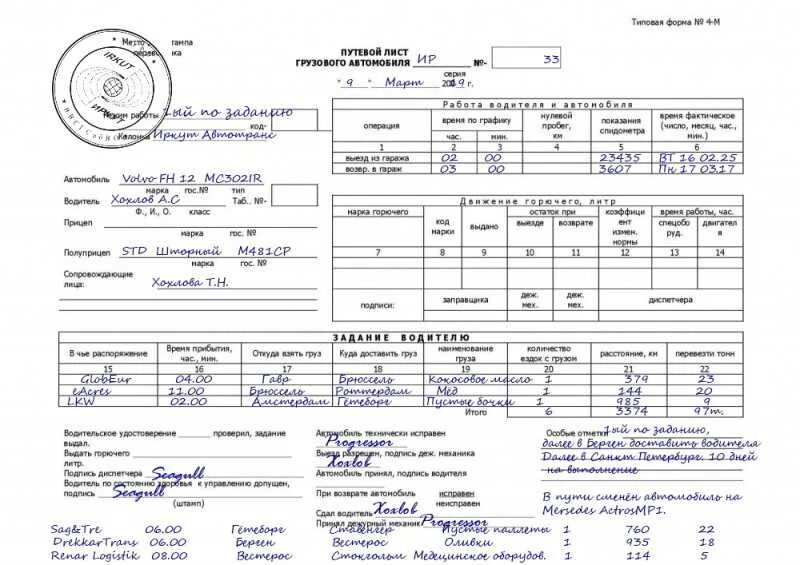 Типовая форма № 4-М
Место штампа
ПУТЕВОЙ ЛИСТ
ГРУЗОВОГО АВТОМОБИЛЯ ИР №- 33
серия
" 9 " Март 2019 г.
IRKUT
ИРКУТ
Режим работы 1ый по заданию
код-
Колонна Иркут Автотранс
Работа водителя и автомобиля
операция время по графику нулевой пробег, км показания спидометра время фактическое (число, месяц, час., мин.)
час. мин.
1 2 3 4 5 6
выезд из гаража 02 00 23435 ВТ 16 02.25
возвр. в гараж 03 00 3607 Пн 17 03.17
Автомобиль Volvo FH 12 MC302IR
марка гос.№ тип
Водитель Хохлов А.С Таб.. №-
Ф., И., О. класс
Прицеп
марка гос. №
Полуприцеп STD Шторный M481CP
марка гос. №
Сопровождающие
лица: Хохлова Т.Н.
Движение горючего, литр
марка горючего код марки выдано остаток при коэффициент измен. нормы время работы, час.
выезде возврате спецоборуд. двигателя
7 8 9 10 11 12 13 14
подписи: заправщика деж. мех. деж. мех. диспетчера
ЗАДАНИЕ ВОДИТЕЛЮ
В чье распоряжение Время прибытия, час., мин. Откуда взять груз Куда доставить груз наименование груза количество ездок с грузом расстояние, км перевезти тонн
15 16 17 18 19 20 21 22
GlobEur 04.00 Гавр Брюссель Кокосовое масло 1 379 23
eAcres 11.00 Брюссель Роттердам Мёд 1 144 20
LKW 02.00 Амстердам Гётеборг Пустые бочки 1 985 9
Итого 6 3374 97т.
Водительское удостоверение проверил, задание
выдал.
Выдать горючего
литр.
Подпись диспетчера Seagull
Водитель по состоянию здоровья к управлению допущен,
подпись Seagull
(штамп)
Автомобиль технически исправен
Progressor
Выезд разрешен, подпись деж. механика
Hoxlov
Автомобиль принял, подпись водителя
При возврате автомобиль исправен
неисправен
Сдал водитель Hoxlov
Принял дежурный механик Progressor
Особые отметки 1ый по заданию,
далее в Берген доставить водителя
Далее в Санкт Петербург. 10 дней
на выполнение
В пути сменён автомобиль на
Mersedes ActrosMP1.
Sag&Tre 06.00 Гётеборг Ставенгер Пустые паллеты 1 760 22
DrekkarTrans 06.00 Берген Вестерос Оливки 1 935 18
Renar Logistik 08.00 Вестерос Стокгольм Медицинское оборудов. 1 114 5